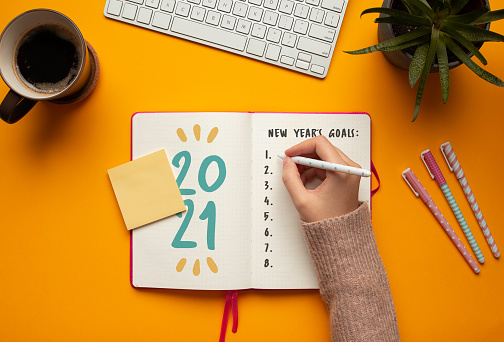 20
21
NEW YEAR'S GOALS:
1.
2.
3.
4.
5.
6.
7.
8.